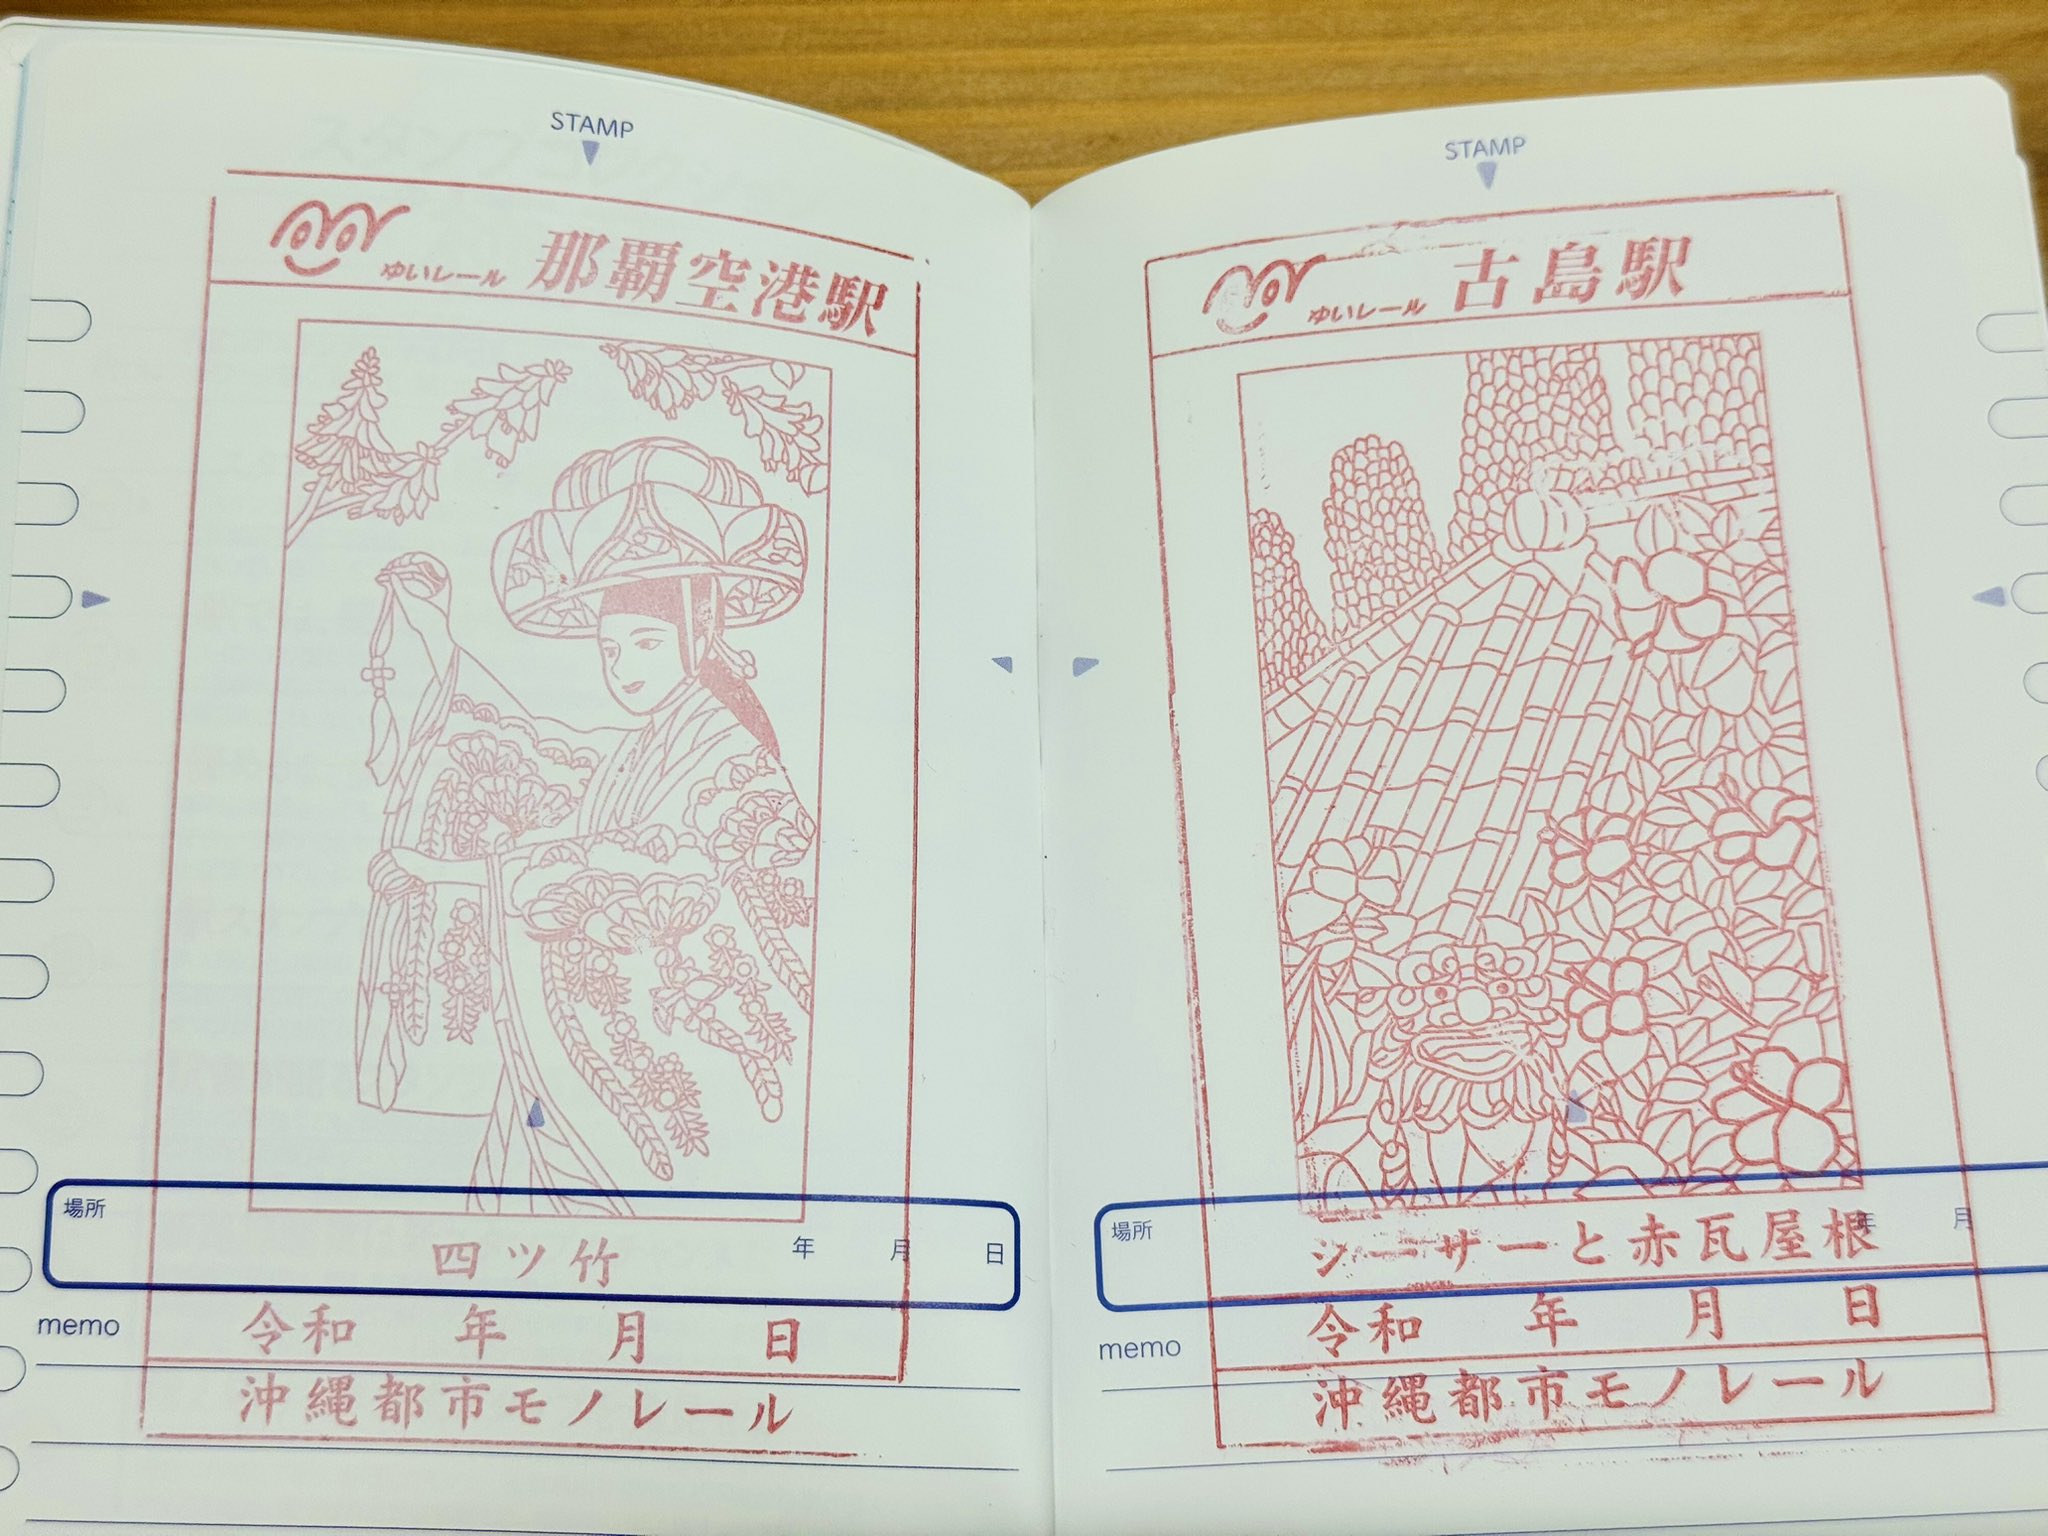 STAMP
ゆいレール 那覇空港駅
場所 年 月 日
四ツ竹
令和 年 月 日
memo
沖縄都市モノレール
STAMP
ゆいレール 古島駅
場所 年 月
シーサーと赤瓦屋根
令和 年 月 日
memo
沖縄都市モノレール